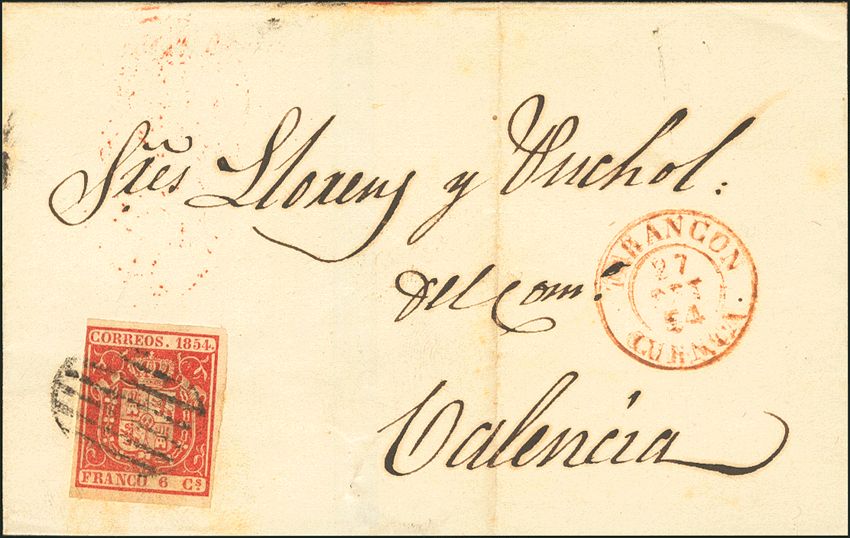 Sres Llorens y Vuchol.
del Com.º
Valencia
TARANCON
27
54
CUENCA.
CORREOS. 1854.
FRANCO 6 Cs